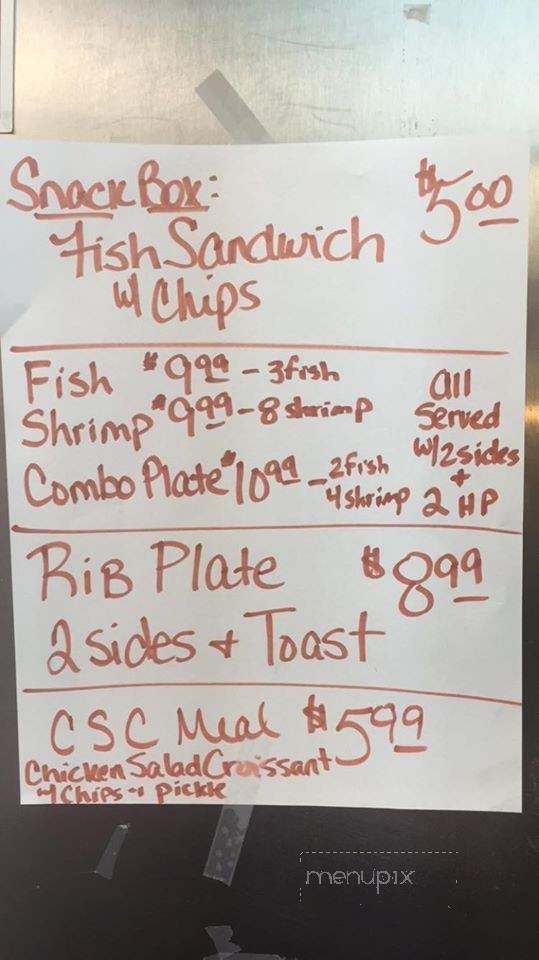 Snack Box: $5.00
Fish Sandwich
w/ Chips
Fish $9.99 - 3 fish
Shrimp $9.99 - 8 shrimp
Combo Plate $10.99 - 2 fish
4 shrimp
all
served
w/ 2 sides
+
2 HP
Rib Plate $8.99
2 sides + Toast
CSC Meal $5.99
Chicken Salad Croissant
w/ Chips + pickle
menupix